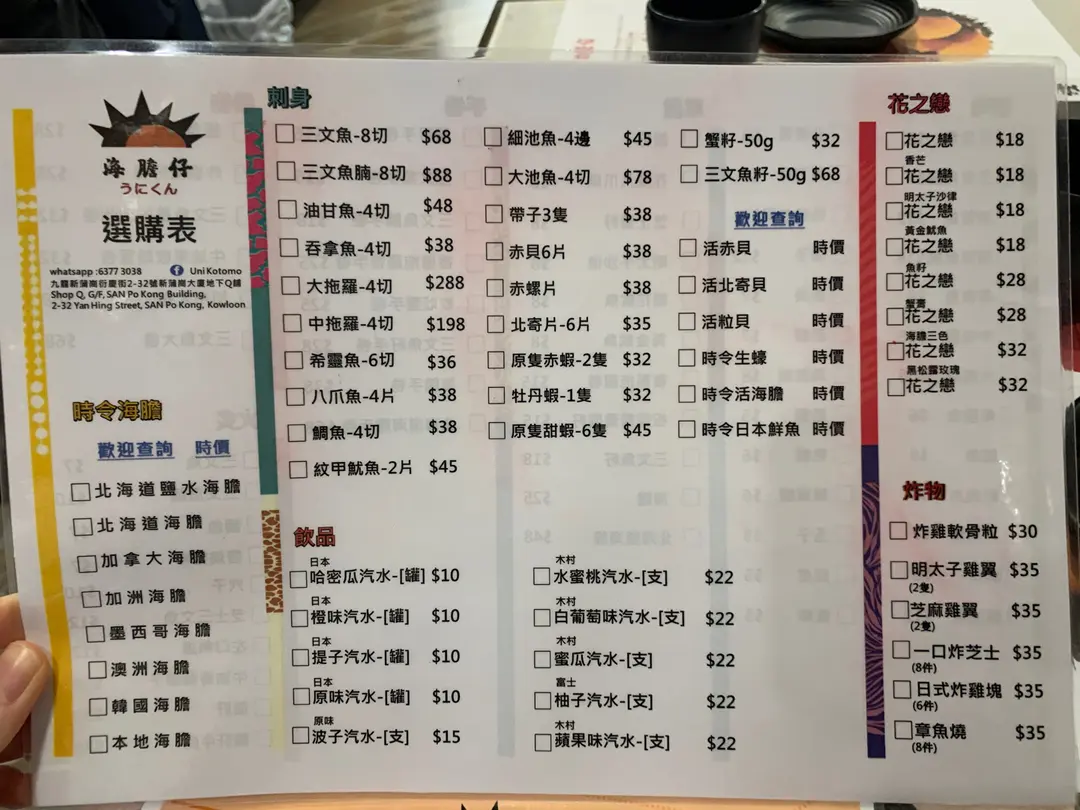 海膽仔
うにくん
選購表
whatsapp :6377 3038 Uni Kotomo
九龍新蒲崗衍慶街2-32號新蒲崗大廈地下Q舖
Shop Q, G/F, SAN Po Kong Building,
2-32 Yan Hing Street, SAN Po Kong, Kowloon
時令海膽
歡迎查詢 時價
北海道鹽水海膽
北海道海膽
加拿大海膽
加洲海膽
墨西哥海膽
澳洲海膽
韓國海膽
本地海膽
刺身
三文魚-8切 $68
三文魚腩-8切 $88
油甘魚-4切 $48
吞拿魚-4切 $38
大拖羅-4切 $288
中拖羅-4切 $198
希靈魚-6切 $36
八爪魚-4片 $38
鯛魚-4切 $38
紋甲魷魚-2片 $45
細池魚-4邊 $45
大池魚-4切 $78
帶子3隻 $38
赤貝6片 $38
赤螺片 $38
北寄片-6片 $35
原隻赤蝦-2隻 $32
牡丹蝦-1隻 $32
原隻甜蝦-6隻 $45
蟹籽-50g $32
三文魚籽-50g $68
歡迎查詢
活赤貝 時價
活北寄貝 時價
活粒貝 時價
時令生蠔 時價
時令活海膽 時價
時令日本鮮魚 時價
飲品
日本
哈密瓜汽水-[罐] $10
日本
橙味汽水-[罐] $10
日本
提子汽水-[罐] $10
日本
原味汽水-[罐] $10
原味
波子汽水-[支] $15
木村
水蜜桃汽水-[支] $22
木村
白葡萄味汽水-[支] $22
木村
蜜瓜汽水-[支] $22
富士
柚子汽水-[支] $22
木村
蘋果味汽水-[支] $22
花之戀
花之戀 $18
香芒
花之戀 $18
明太子沙律
花之戀 $18
黃金魷魚
花之戀 $18
魚籽
花之戀 $28
蟹膏
花之戀 $28
海膽三色
花之戀 $32
黑松露玫瑰
花之戀 $32
炸物
炸雞軟骨粒 $30
明太子雞翼 $35
(2隻)
芝麻雞翼 $35
(2隻)
一口炸芝士 $35
(8件)
日式炸雞塊 $35
(6件)
章魚燒 $35
(8件)